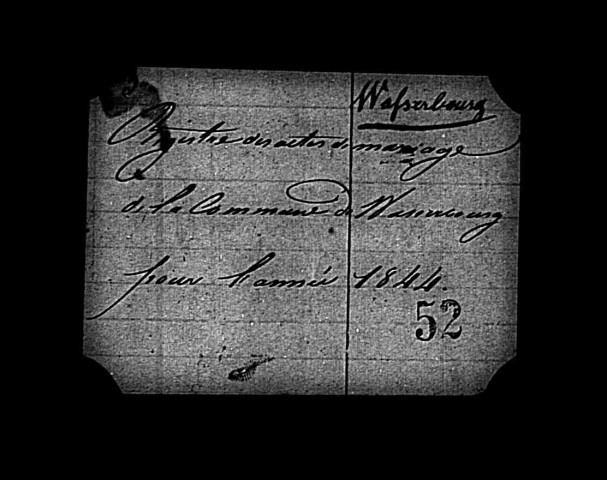 Wasserbourg
Registre des actes de mariage
de la Commune de Wasserbourg
pour l'année 1844.
52